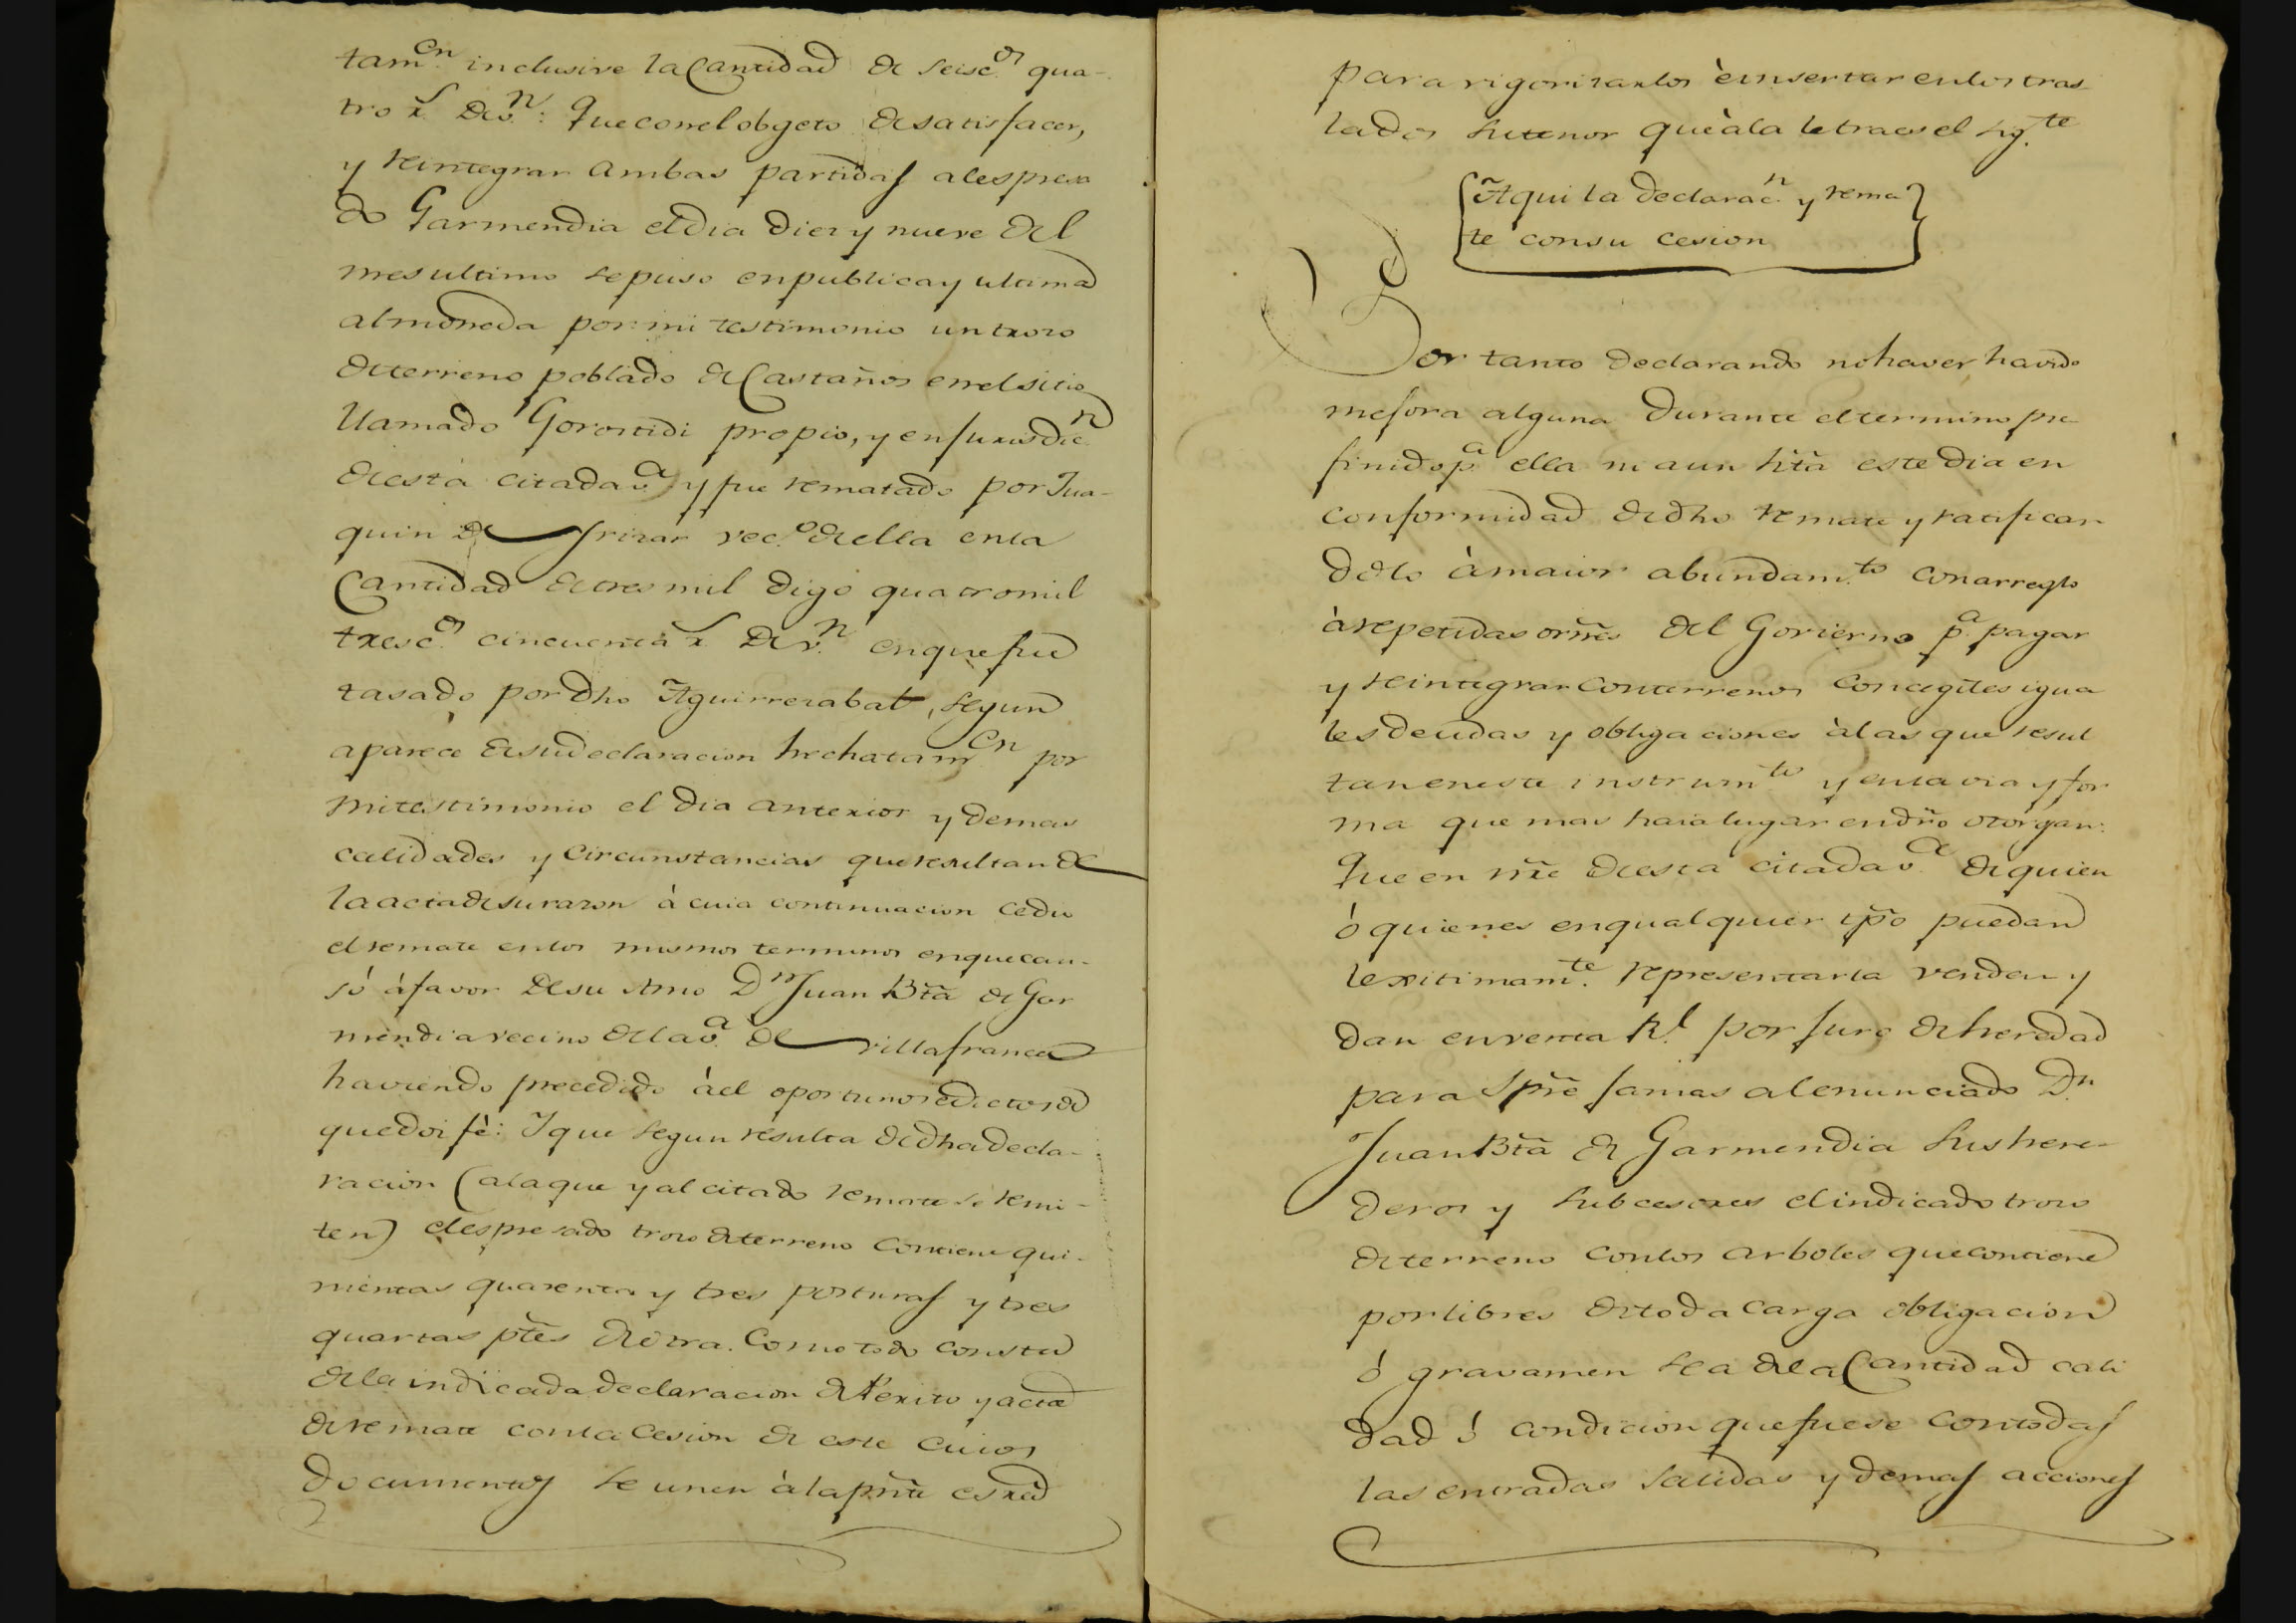 tam.en inclusive la Cantidad de seisc.os qua-
tro r.s de v.n: Que con el obgeto de satisfacer,
y reintegrar ambas partidas al espresa
do Garmendia el dia diez y nueve del
mes ultimo se puso en publica y ultima
almoneda por mi testimonio un trozo
de terreno poblado de Castaños en el sitio
llamado Gorostidi propio, y en su xurisdic.n
de esta citada v.a y fue rematado por Jua-
quin de Irizar vec.o de ella en la
Cantidad de tres mil digo quatro mil
tresc.os cincuenta r.s de v.n en que fue
tasado por dho Aguirrezabal, segun
aparece de su declaracion hecha tam.en por
mi testimonio el dia anterior y demas
calidades y circunstancias que resultan de
la acta de su razon á cuia continuacion cedio
el remate en los mismos terminos en que cau-
só á favor de su Amo D.n Juan Bta de Gar
mendia vecino de la v.a de Villafranca
haviendo precedido á él oportunos edictos de
que doi fè: Y que segun resulta de dha decla-
racion (a la que y al citado remate se remi-
ten) el espresado trozo de terreno contiene qui-
nientas quarenta y tres posturas y tres
quartas ptes de otra. Como todo consta
de la indicada declaracion de Perito y acta
de remate con la Cesion de este cuios
documentos se unen à la pnte esxra
para rigorizarlos è insertar en los tras
lados su tenor que à la letra es el sig.te
Aqui la declarac.n y rema
te con su cesion
Por tanto declarando no haver havido
mejora alguna durante el termino pre
finido p.a ella ni aun hta este dia en
conformidad de dho remate y ratifican
dolo à maior abundam.to con arreglo
à repetidas ornes del Govierno p.a pagar
y reintegrar con terrenos Concegiles igua
les deudas y obligaciones à las que resul
tan en este instrum.to y en la via y for
ma que mas haia lugar en dro otorgan:
Que en nre de esta citada v.a de quien
ó quienes en qualquier tpo puedan
lexitimam.te representarla venden y
dan en venta R.l por juro de heredad
para spre jamas al enunciado D.n
Juan Bta de Garmendia sus here-
deros y subcesores el indicado trozo
de terreno con los arboles que contiene
por libres de toda carga obligacion
ó gravamen sea de la Cantidad cali
dad ó condicion que fuese con todas
las entradas salidas y demas acciones